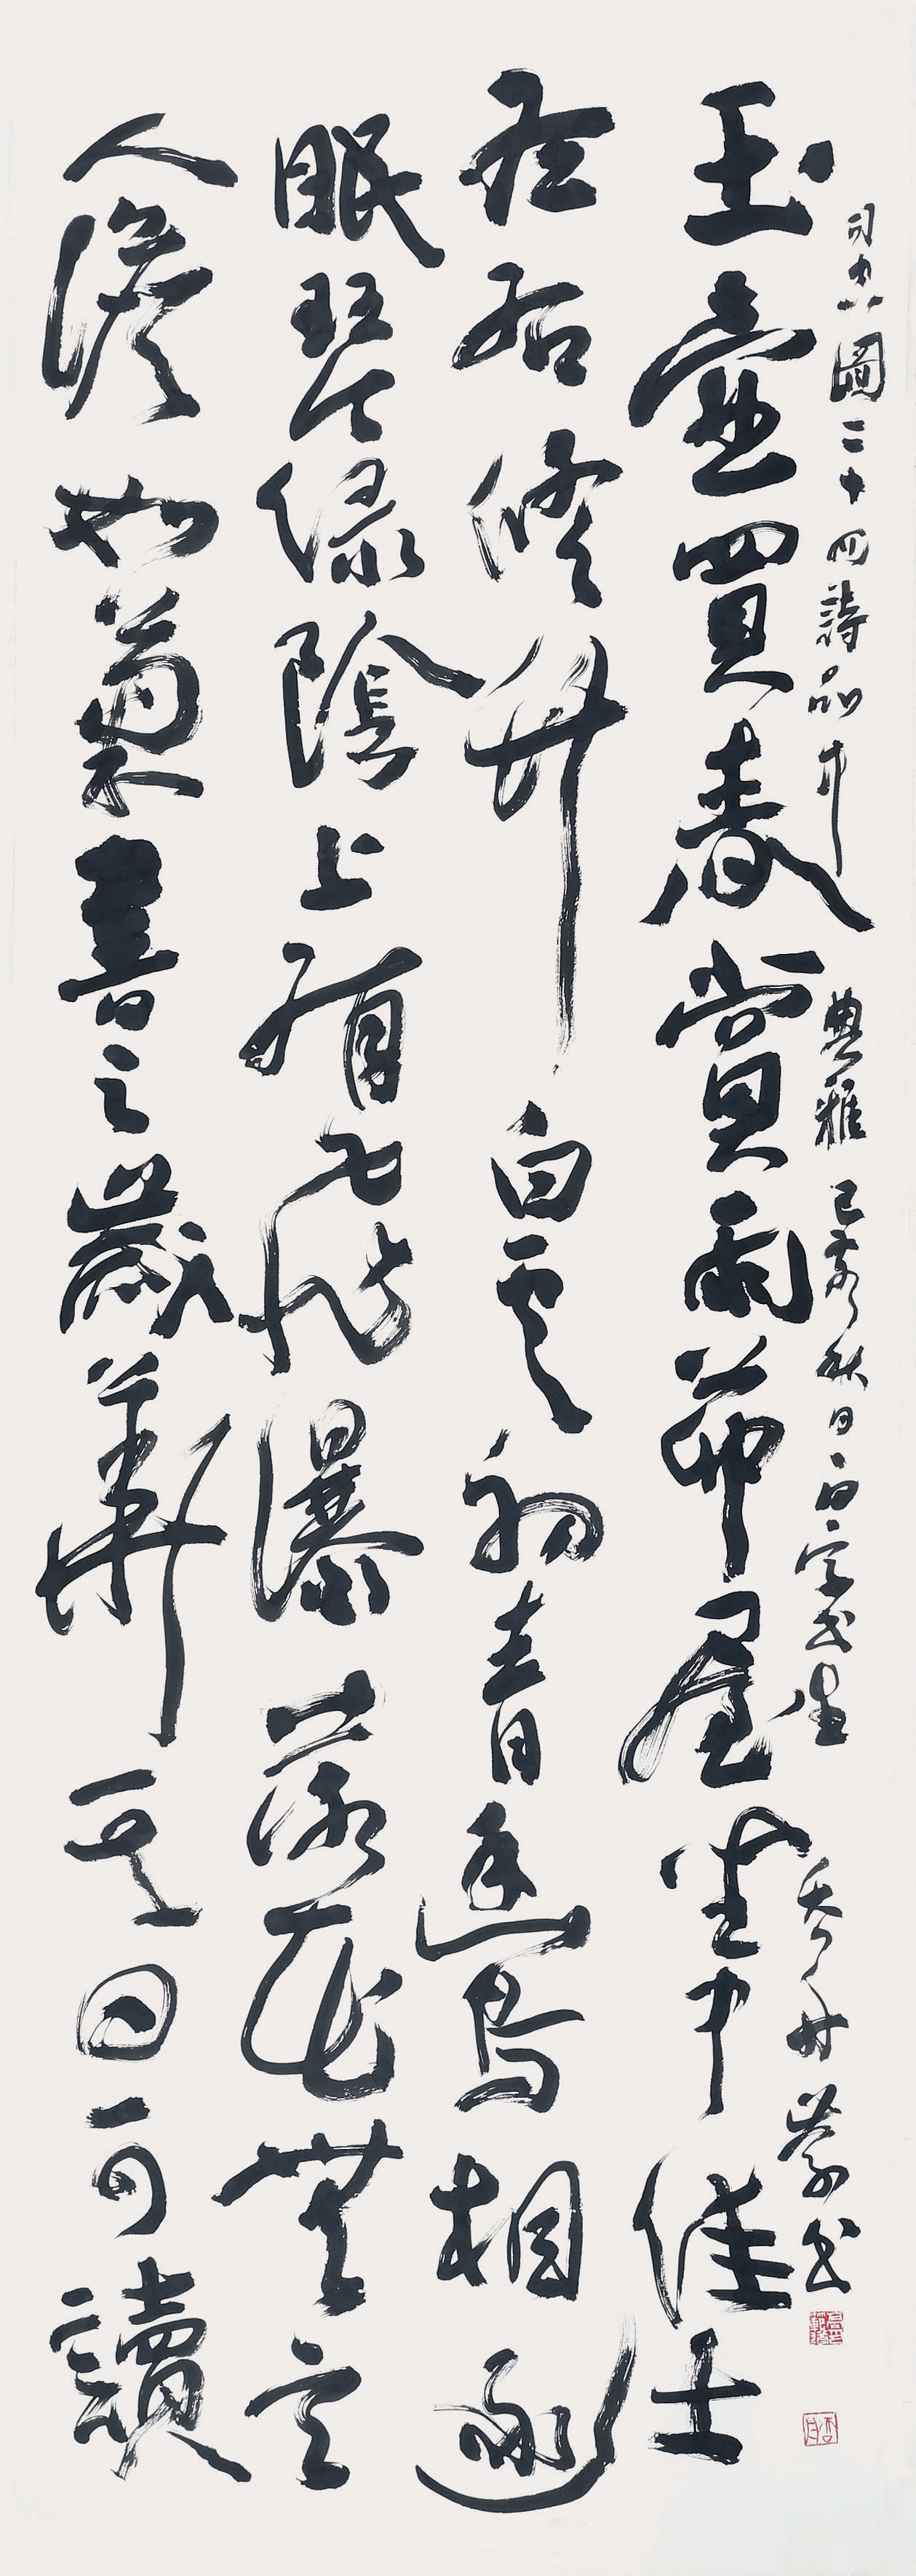 司空圖二十四詩品中 典雅 己亥秋日 書
玉壺買春賞雨茅屋坐中佳士
左右修竹白雲初晴幽鳥相逐
眠琴綠陰上有飛瀑落花無言
人澹如菊書之歲華其曰可讀